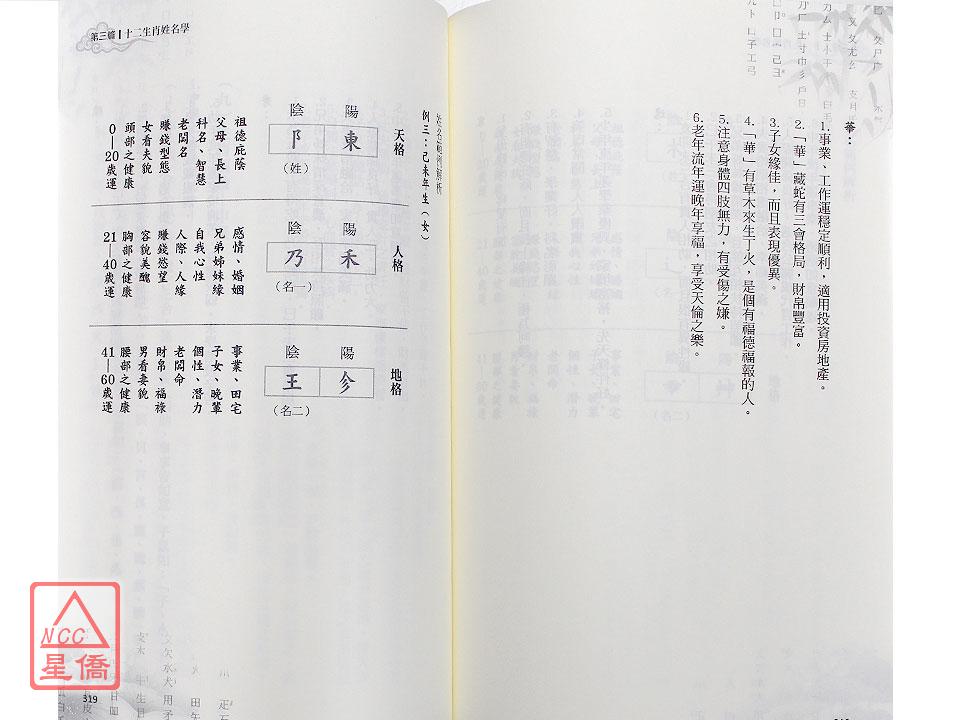 華：
1.事業、工作運穩定順利，適用投資房地產。
2.「華」藏蛇有三會格局，財帛豐富。
3.子女緣佳，而且表現優異。
4.「華」有草木來生丁火，是個有福德福報的人。
5.注意身體四肢無力，有受傷之嫌。
6.老年流年運晚年享福，享受天倫之樂。
第三篇 十二生肖姓名學
姓名範例解析
例三：己未年生（女）
天格
陽 東
陰 阝
（姓）
祖德庇蔭
父母、長上
科名、智慧
老闆名
賺錢型態
女看夫貌
頭部之健康
0—20歲運
人格
陽 禾
陰 乃
（名一）
感情、婚姻
兄弟姊妹緣
自我心性
人際、人緣
賺錢慾望
容貌美醜
胸部之健康
21—40歲運
地格
陽
陰 王
（名二）
事業、田宅
子女、晚輩
個性、潛力
老闆命
財帛、福祿
男看妻貌
腰部之健康
41—60歲運
NCC
星僑
319